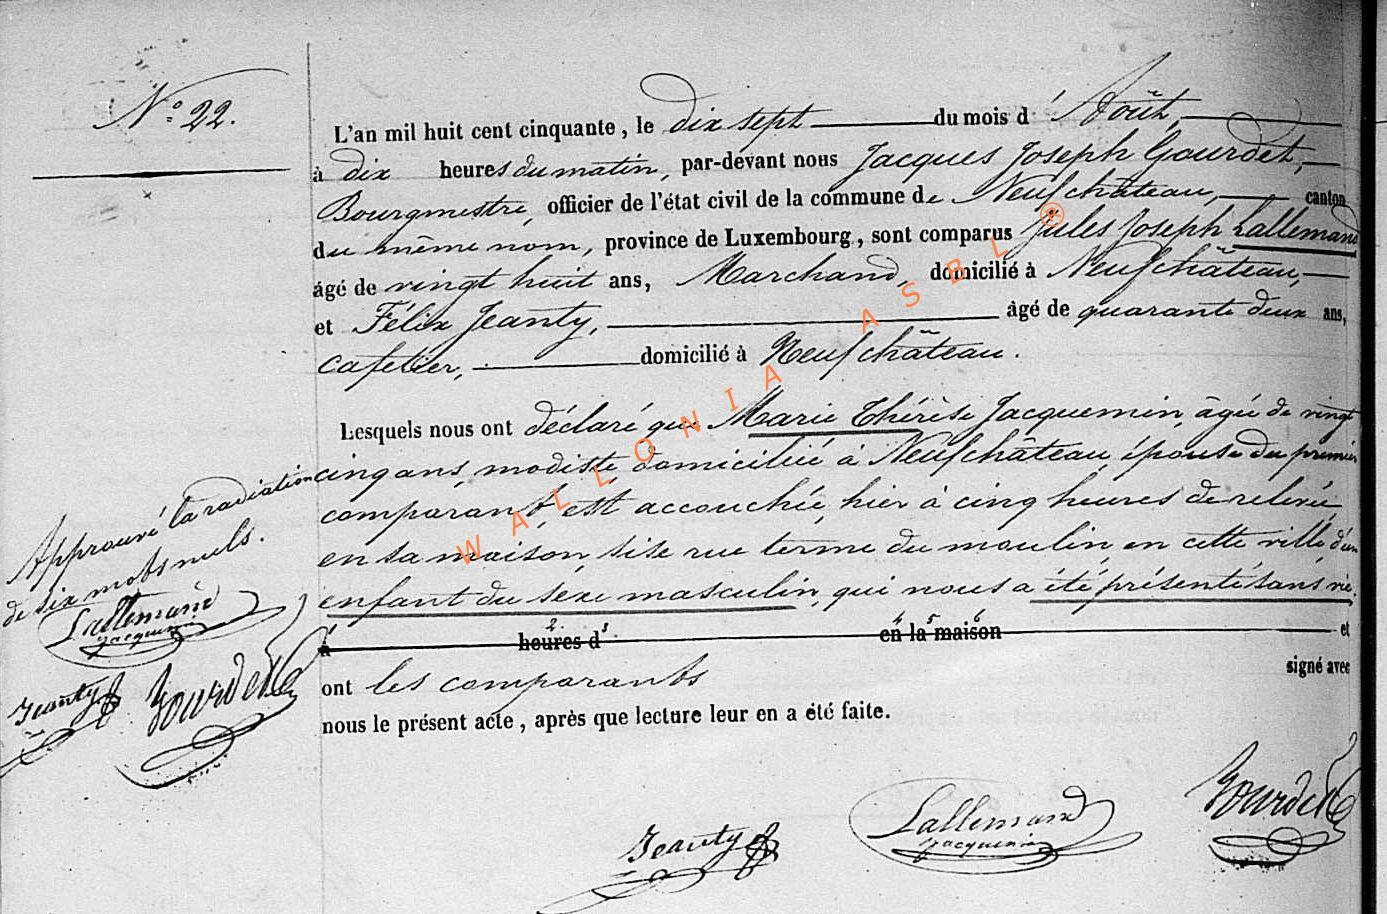 N.º 22.
L'an mil huit cent cinquante, le dix sept du mois d'Août,
à dix heures du matin, par-devant nous Jacques Joseph Gourdet,
Bourgmestre, officier de l'état civil de la commune de Neufchâteau, canton
du même nom, province de Luxembourg, sont comparus Jules Joseph Lallemand
âgé de vingt huit ans, Marchand, domicilié à Neufchâteau,
et Félix Jeanty, âgé de quarante deux ans,
cafetier, domicilié à Neufchâteau.
Lesquels nous ont déclaré que Marie Thérèse Jacquemin, âgée de vingt
cinq ans, modiste domiciliée à Neufchâteau, épouse du premier
comparant, est accouchée, hier à cinq heures de relevée
en sa maison, sise rue terme du moulin, en cette ville, d'un
enfant du sexe masculin, qui nous a été présenté sans vie.
à heures d en la maison et
2. 3. 4 5 6
ont les comparants signé avec
nous le présent acte, après que lecture leur en a été faite.
Approuvé la radiation
de six mots nuls.
Lallemand
Jacquemin
Jeanty
Gourdet
Jeanty
Lallemand
Jacquemin
Gourdet
WALLONIA ASBL ®